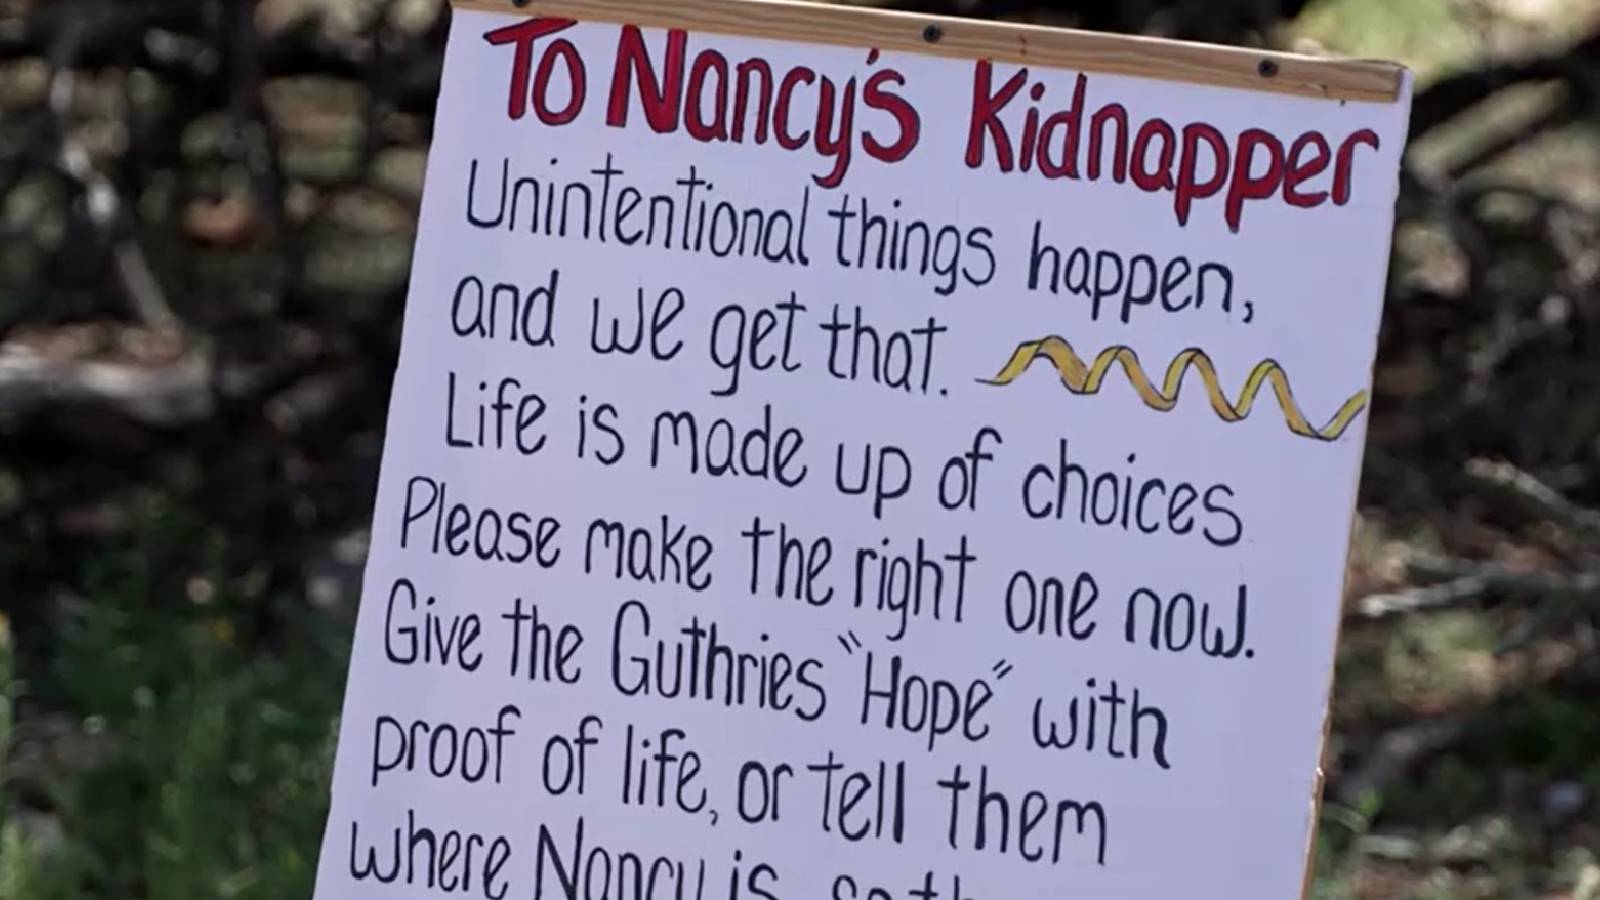 To Nancy's Kidnapper
Unintentional things happen,
and we get that.
Life is made up of choices
Please make the right one now.
Give the Guthries "Hope" with
proof of life, or tell them
where Nancy is